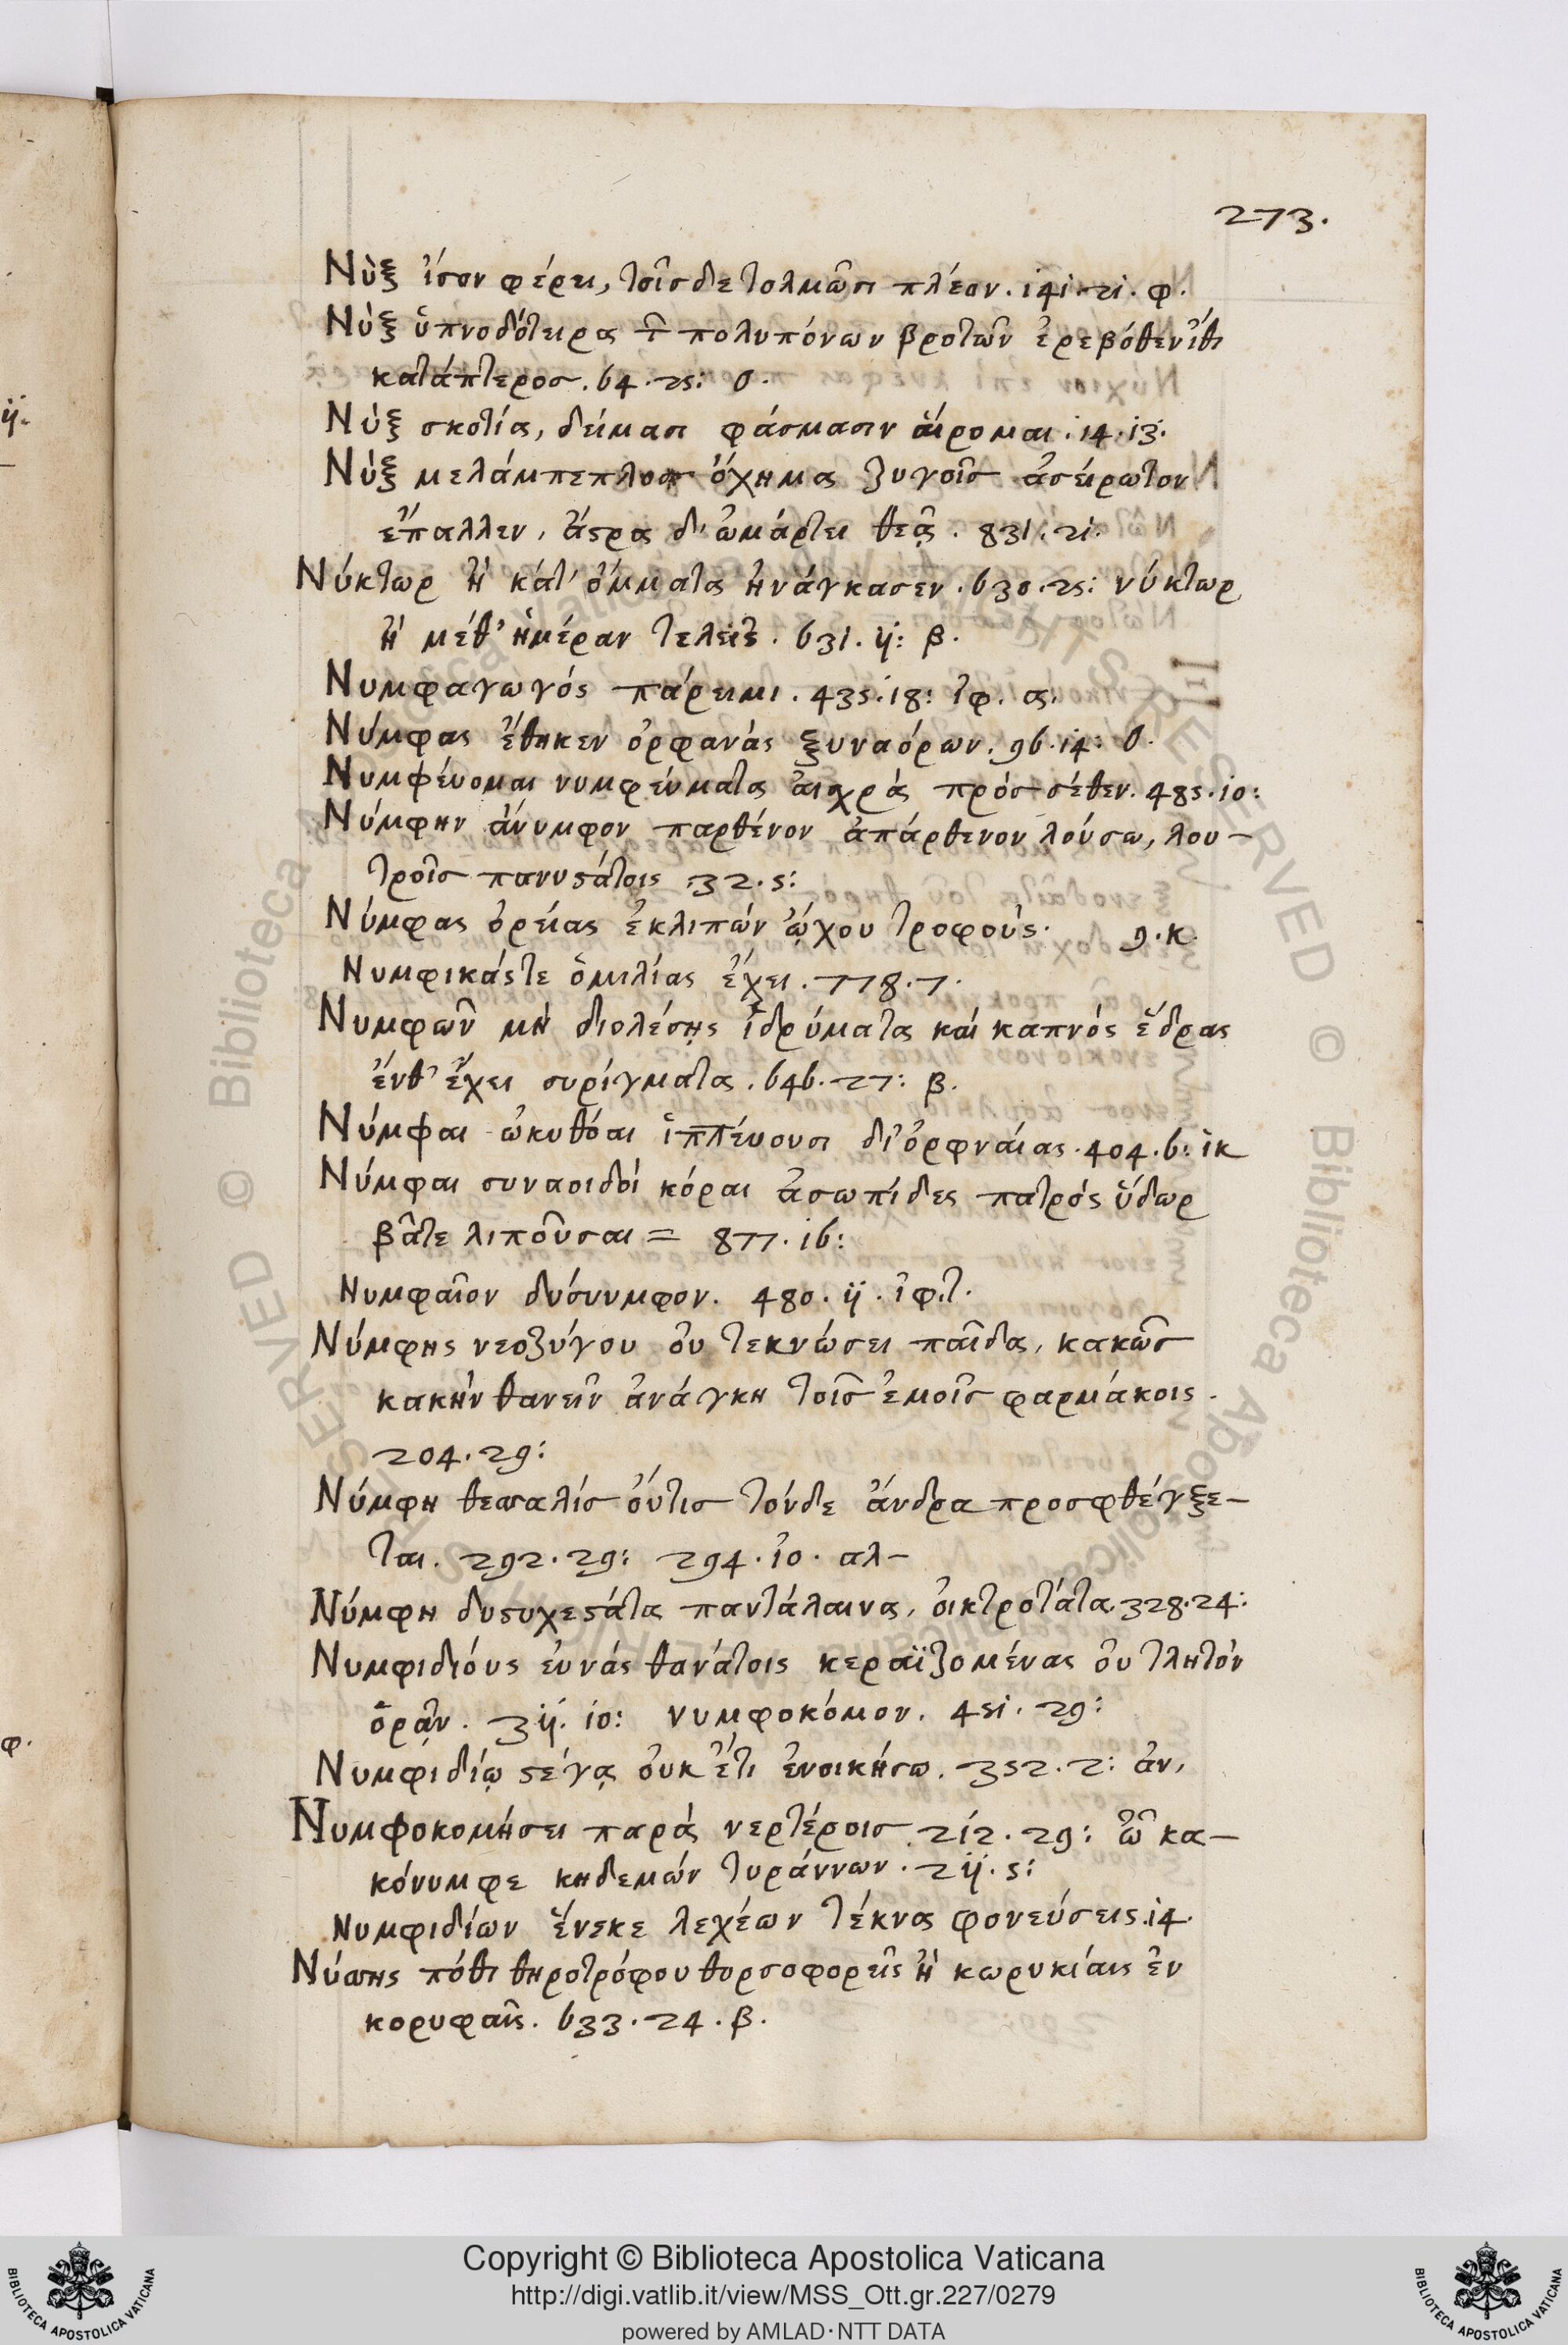 273.
Νὺξ ἴσον φέρει, τοῖσ δε τολμῶσι πλέον. 141. 21. φ.
Νὺξ ὑπνοδότειρα τ̑ πολυπόνων βροτῶν ἐρεβόθεν ἴθι
κατάπτεροσ. 64. 25: ο.
Νὺξ σκοτία, δείμασι φάσμασιν ἄιρομαι. 14. 13.
Νὺξ μελάμπεπλοσ ὄχημα ζυγοῖσ ἀσείρωτον
ἔπαλλεν, ἄϛρα δ' ὠμάρτει θεᾷ. 831. 21.
Νύκτωρ ἢ κάτ' ὄμματα ἠνάγκασεν. 630. 25: νύκτωρ
ἢ μέθ' ἡμέραν τελεῖς. 631. ij: β.
Νυμφαγωγός πάρειμι. 435. 18: ἰφ. α.
Νύμφας ἔθηκεν ὀρφανάς ξυναόρων. 96. 14: ο.
Νυμφέυομαι νυμφέυματα ἀιχρά πρόσ σέθεν. 485. 10:
Νύμφην ἄνυμφον παρθένον ἀπάρθενον λούσω, λου-
τροῖσ πανυϛάτοις. 32. 5:
Νύμφας ὀρείας ἐκλιπών ᾤχου τροφούς. 9. κ.
Νυμφικάς τε ὁμιλίας ἔχει. 778. 7.
Νυμφῶν μὴ διολέσῃς ἱδρύματα καί καπνός ἕδρας
ἔνθ' ἔχει συρίγματα. 646. 27: β.
Νύμφαι ὠκυθόαι ἱππέυουσι δι' ὀρφνάιας. 404. 6: ἱκ
Νύμφαι συναοιδοί κόραι ἀσωπίδες πατρός ὕδωρ
βᾶτε λιποῦσαι = 877. 16:
Νυμφαῖον δύσνυμφον. 480. ij. ἰφ. τ.
Νύμφης νεοζύγου ὀυ τεκνώσει παῖδα, κακῶσ
κακήν θανεῖν ἀνάγκη τοῖσ ἐμοῖσ φαρμάκοις.
204. 29:
Νύμφη θεσσαλίσ ὄυτισ τόνδε ἄνδρα προσφθέγξε-
ται. 292. 29: 294. 10. αλ-
Νύμφη δυϛυχεϛάτα παντάλαινα, ὀικτροτάτα. 328. 24:
Νυμφιδιόυς ἐυνάς θανάτοις κεραϊζομένας ὀυ τλητόν
ὁρᾷν. 3ij. 10: νυμφοκόμον. 451. 29:
Νυμφιδίῳ ϛέγᾳ ὀυκ ἔτι ἐνοικήσω. 352. 2: ἀν,
Νυμφοκομήσει παρά νερτέροισ. 212. 29: ὦ κα-
κόνυμφε κηδεμών τυράννων. 2ij. 5:
Νυμφιδίων ἕνεκε λεχέων τέκνα φονεύσεις. 14.
Νύσσης πόθι θηροτρόφου θυρσοφορεῖς ἢ κωρυκίαις ἐν
κορυφαῖς. 633. 24. β.
ij.
φ.
Copyright © Biblioteca Apostolica Vaticana
http://digi.vatlib.it/view/MSS_Ott.gr.227/0279
powered by AMLAD·NTT DATA